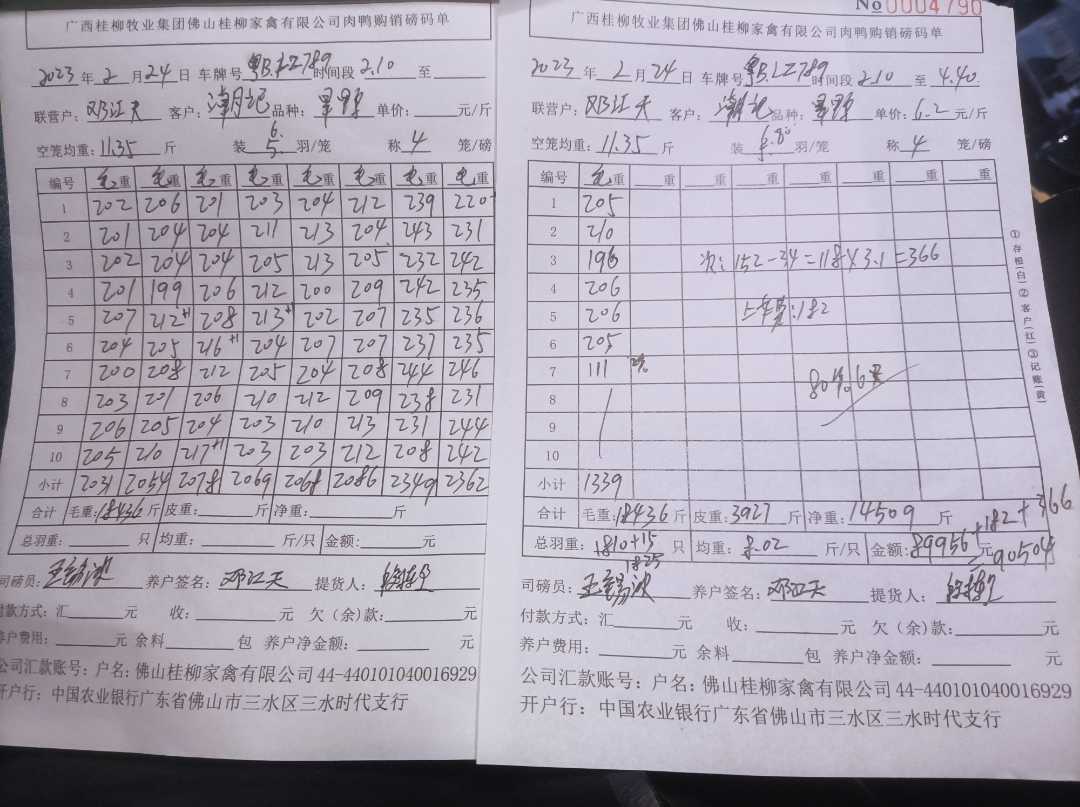 广西桂柳牧业集团佛山桂柳家禽有限公司肉鸭购销磅码单
2023年2月24日 车牌号粤B.LZ789时间段2.10至
联营户:邓江天 客户:潮记品种: 单价: 元/斤
空笼均重:11.35斤 装6.5.羽/笼 称4笼/磅
编号 毛重 毛重 毛重 毛重 毛重 毛重 毛重 毛重
1 202 206 201 203 204 212 239 220
2 201 204 204 211 213 204 243 231
3 202 204 204 205 213 205 232 242
4 201 199 206 212 200 209 242 235
5 207 212+1 208 213+1 202 207 235 236
6 204 205 216+1 204 207 207 237 235
7 200 208 212 205 204 208 244 246
8 203 201 206 210 212 209 238 231
9 206 205 204 203 210 213 231 244
10 205 210 217+1 203 203 212 208 242
小计 2031 2054 2078 2069 2068 2086 2349 2362
合计 毛重:18436斤 皮重: 斤 净重: 斤
总羽重: 只 均重: 斤/只 金额: 元
司磅员: 养户签名:邓江天 提货人:
付款方式:汇 元 收: 元 欠(余)款: 元
养户费用: 元 余料 包 养户净金额: 元
公司汇款账号:户名:佛山桂柳家禽有限公司44-440101040016929
开户行:中国农业银行广东省佛山市三水区三水时代支行
No 0004790
广西桂柳牧业集团佛山桂柳家禽有限公司肉鸭购销磅码单
2023年2月24日 车牌号粤B.LZ789时间段2.10至4.40
联营户:邓江天 客户:潮记品种: 单价:6.2元/斤
空笼均重:11.35斤 装 羽/笼 称4笼/磅
编号 毛重 重 重 重 重 重 重 重
1 205
2 210
3 196 次:152-34=118×3.1=366
4 206
5 206 上车费:182
6 205
7 111
8
9
10
小计 1339
合计 毛重:18436斤 皮重:3927斤 净重:14509斤
总羽重:1810+15 1825只 均重:8.02斤/只 金额:89956+182+366元=90504
司磅员: 养户签名:邓江天 提货人:
付款方式:汇 元 收: 元 欠(余)款: 元
养户费用: 元 余料 包 养户净金额: 元
公司汇款账号:户名:佛山桂柳家禽有限公司44-440101040016929
开户行:中国农业银行广东省佛山市三水区三水时代支行
①存根(白)②客户(红)③记账(黄)